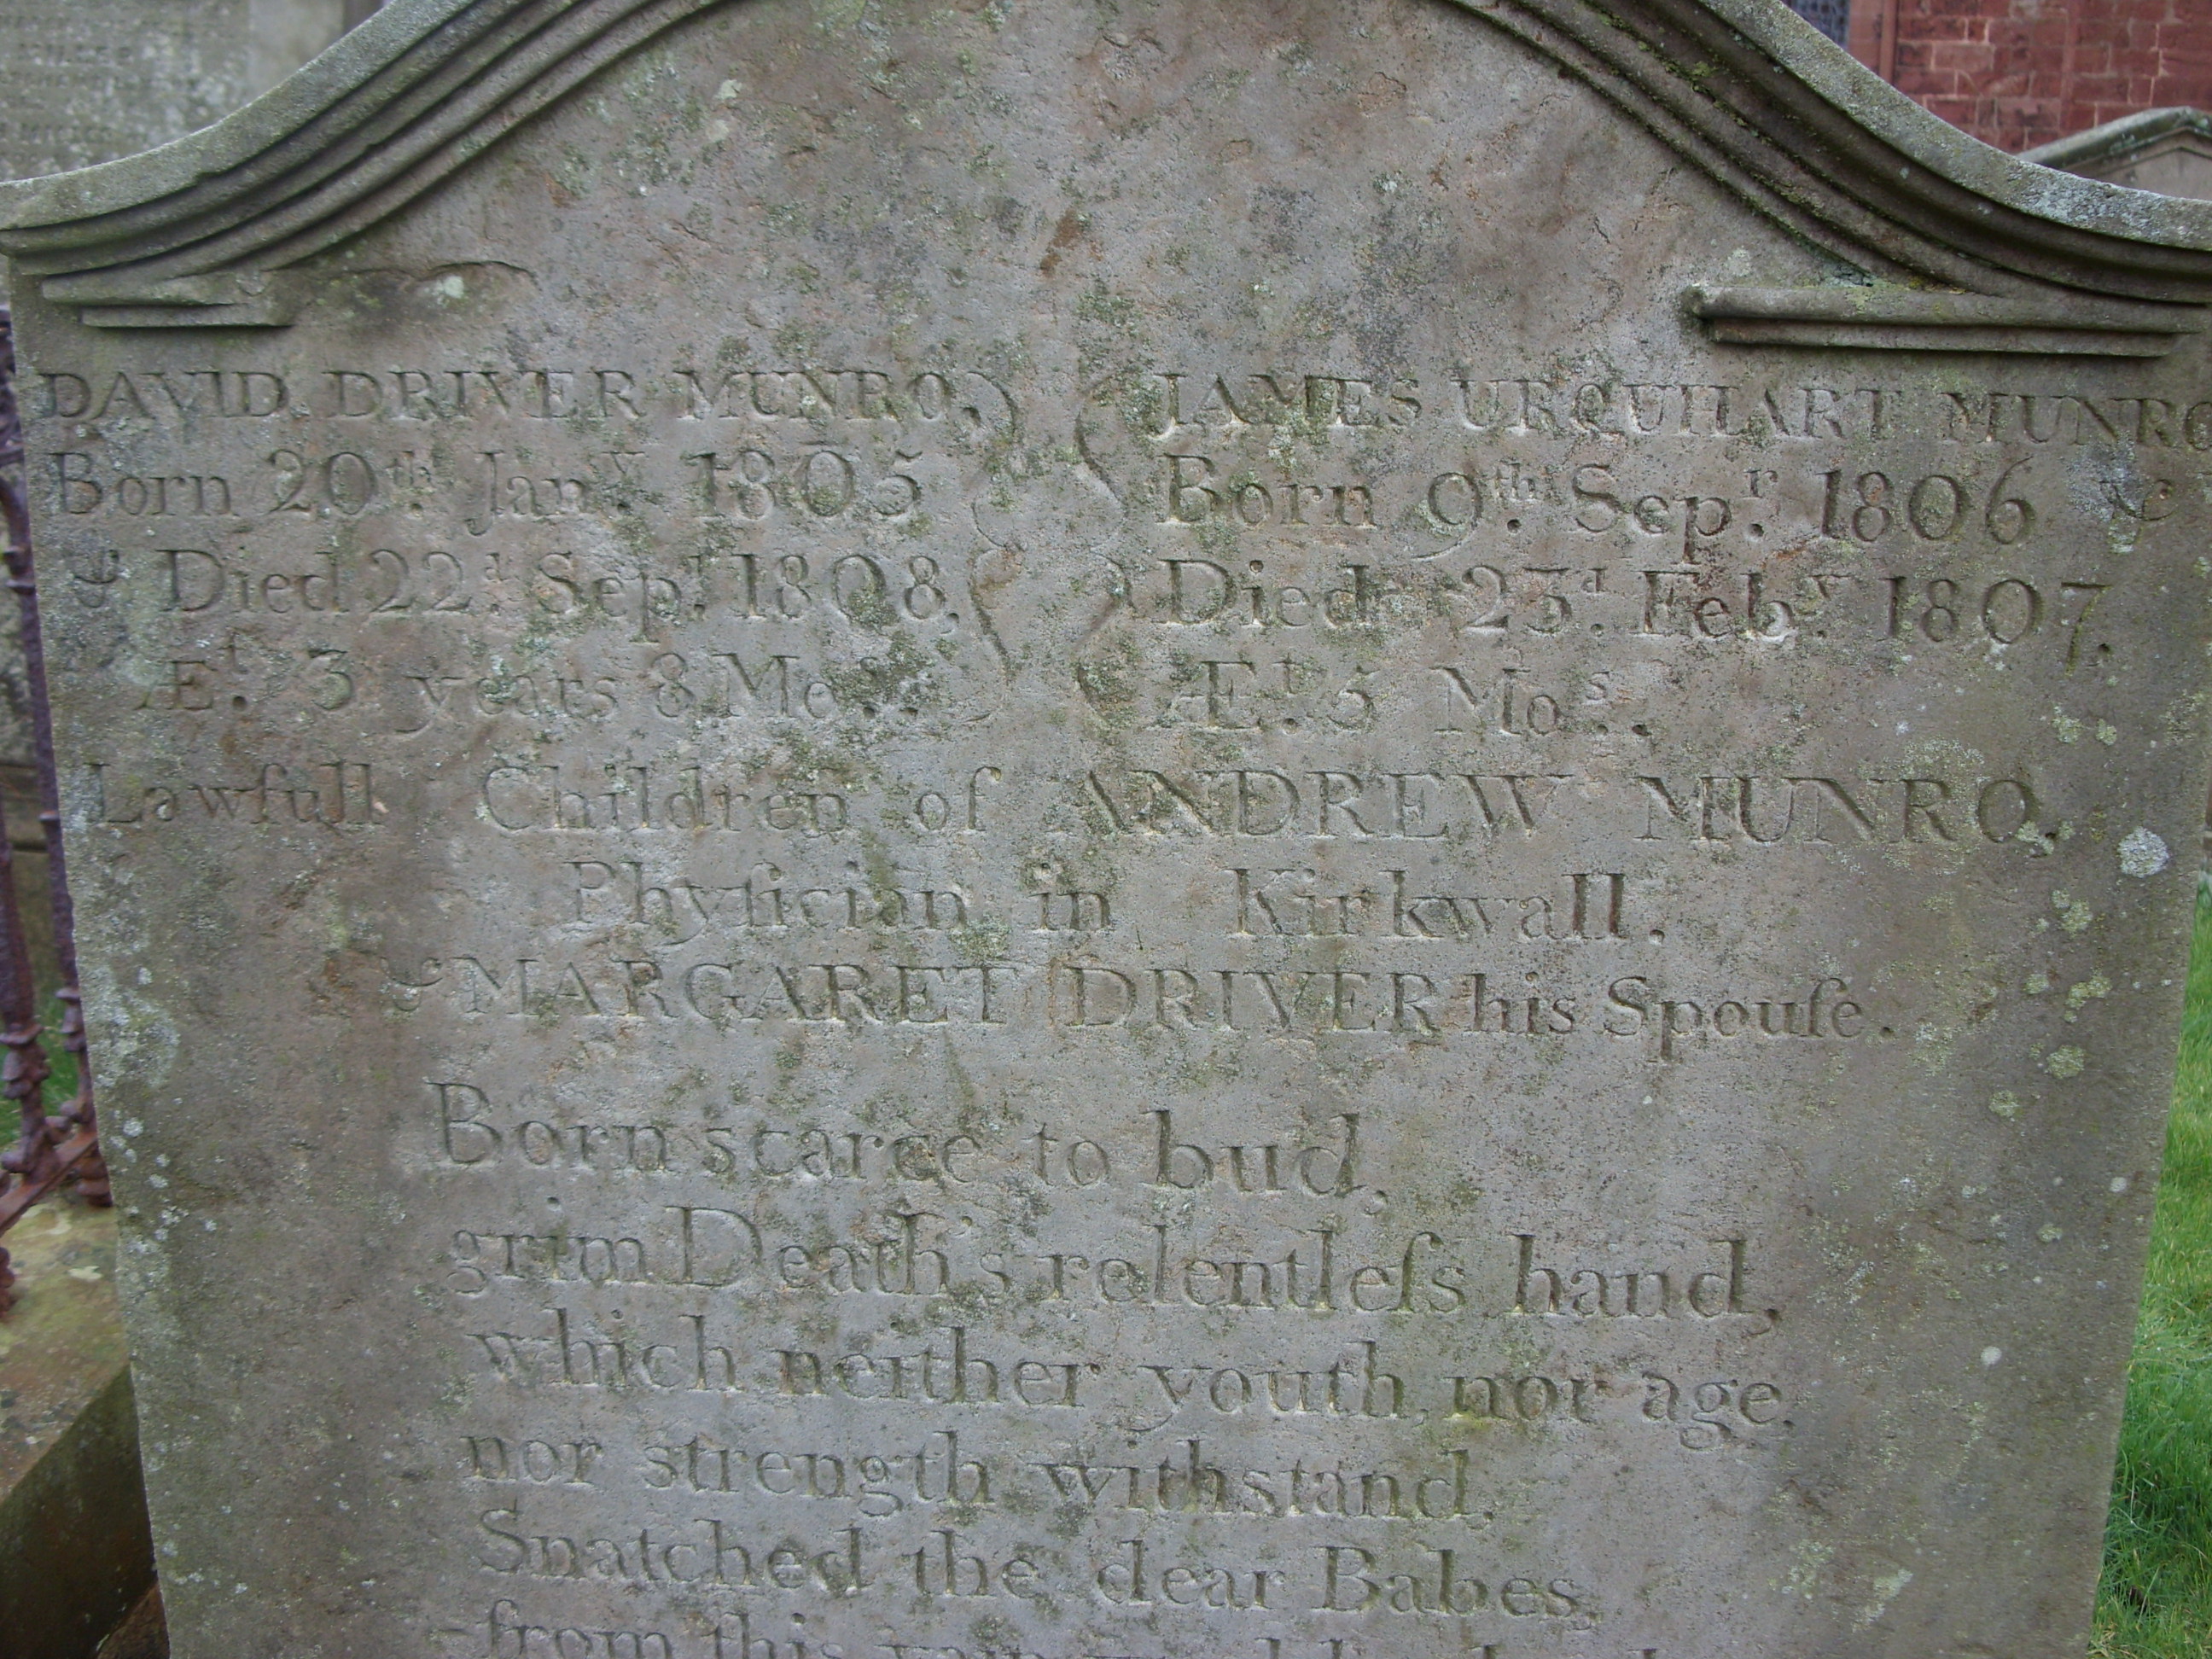 DAVID DRIVER MUNRO,
Born 20th. Jany. 1805
& Died 22d. Sepr. 1808,
Æt. 3 years 8 Mos.
JAMES URQUHART MUNRO
Born 9th. Sepr. 1806 &
Died 23d. Feby. 1807.
Æt. 5 Mos.
Lawfull Children of ANDREW MUNRO,
Phyſician in Kirkwall.
& MARGARET DRIVER his Spouſe.
Born scarce to bud,
grim Death's relentleſs hand,
which neither youth, nor age,
nor strength withstand,
Snatched the dear Babes,
from this vain